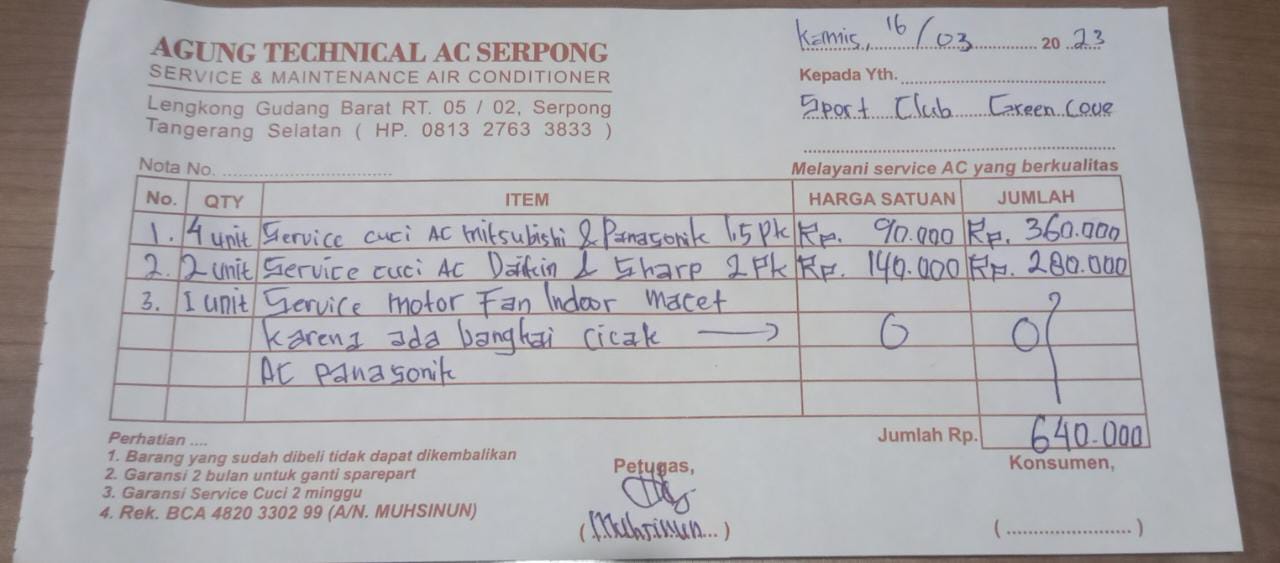 AGUNG TECHNICAL AC SERPONG
SERVICE & MAINTENANCE AIR CONDITIONER
Lengkong Gudang Barat RT. 05 / 02, Serpong
Tangerang Selatan ( HP. 0813 2763 3833 )
Kamis, 16/03 20 23
Kepada Yth.
Sport Club Green Cove
Nota No.
Melayani service AC yang berkualitas
No. QTY ITEM HARGA SATUAN JUMLAH
1. 4 unit Service cuci AC mitsubishi & Panasonik 1,5 pk Rp. 90.000 Rp. 360.000
2. 2 unit Service cuci AC Daikin & Sharp 2 Pk Rp. 140.000 Rp. 280.000
3. 1 unit Service motor Fan Indoor macet
karena ada bangkai cicak → 0 0
AC panasonik
Jumlah Rp. 640.000
Perhatian ....
1. Barang yang sudah dibeli tidak dapat dikembalikan
2. Garansi 2 bulan untuk ganti sparepart
3. Garansi Service Cuci 2 minggu
4. Rek. BCA 4820 3302 99 (A/N. MUHSINUN)
Petugas,
(Muhsinun...)
Konsumen,
(........................)